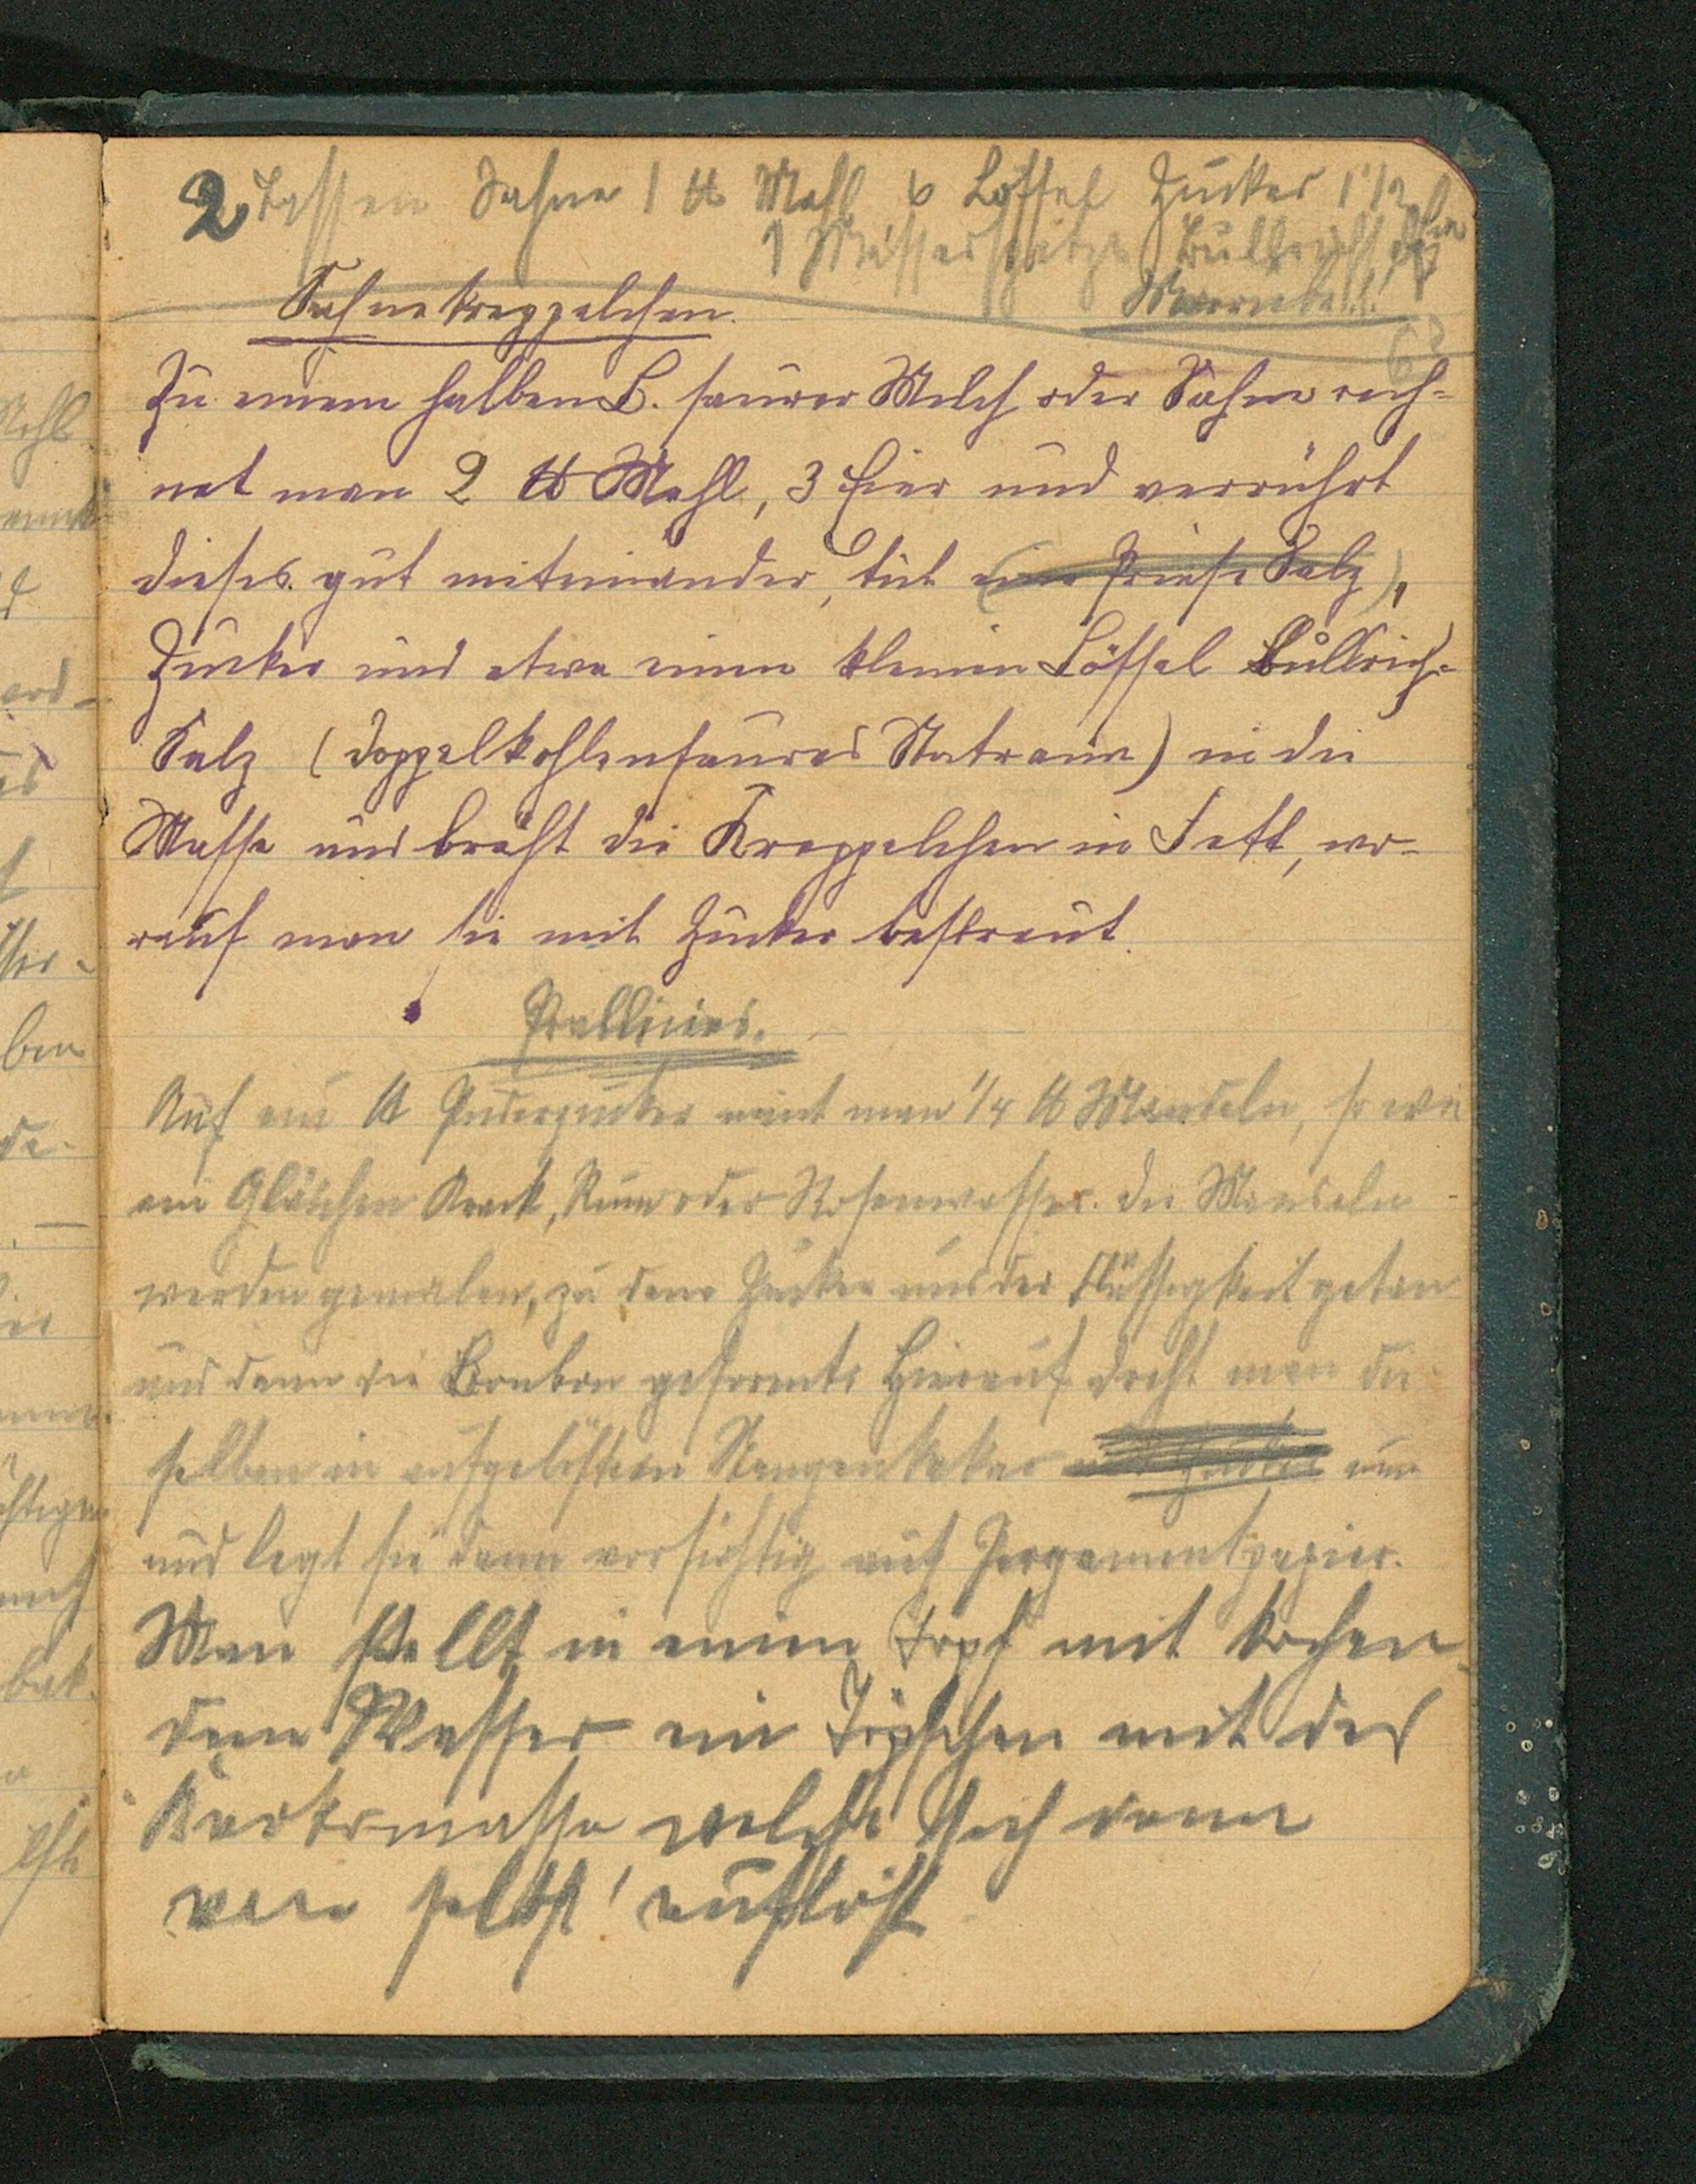 2 Tassen Sahne 1 ℔ Mehl 6 Löffel Zucker 1 1/2
1 Messerspitze Bullrichsalz
Sahnekreppelchen.
Zu einem halben L. saurer Milch oder Sahne rech-
net man 2 ℔ Mehl, 3 Eier und verrührt
dieses gut miteinander, tut (eine Priese Salz),
Zucker und etwa einen kleinen Löffel Bullrich-
Salz (doppelkohlensaures Natraum) in die
Masse und bräht die Kreppelchen in Fett, wo-
rauf man sie mit Zucker bestreut.
Prallines.
Auf ein ℔ Puderzucker nimt man 1/4 ℔ Mandeln, so wie
ein Gläschen Arack, Rum oder Rosenwasser. Die Mandeln
werden gemalen, zu dem Zucker und der Flüssigkeit getan
und dann die Bonbon geformt. Hierauf dreht man die
selben in aufgelöstem Stangenkakao um
und legt sie dann vorsichtig auf Pergamentpapier.
Man stellt in einen Topf mit kochen
dem Wasser ein Töpfchen mit der
masse welche sich dann
von selbst auflöst
Mehl
ben